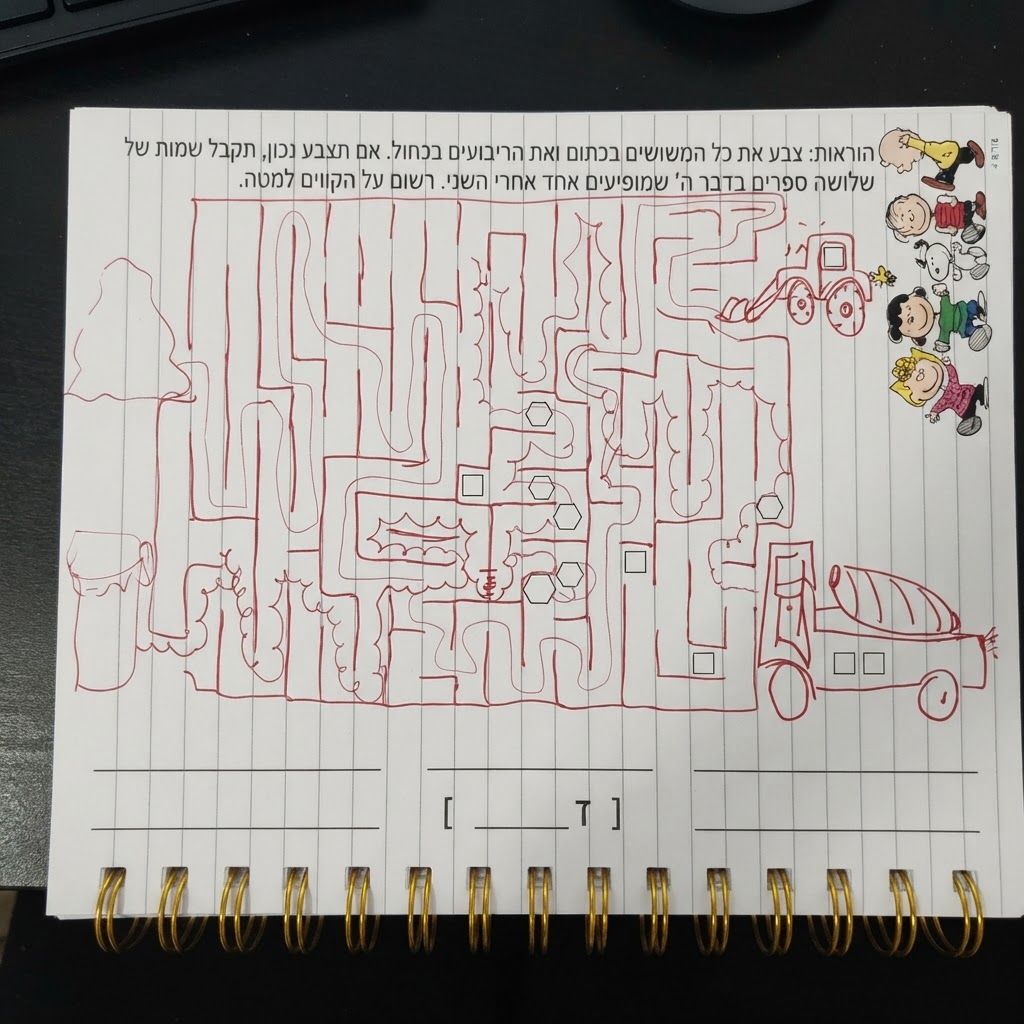 הוראות: צבע את כל המשושים בכתום ואת הריבועים בכחול. אם תצבע נכון, תקבל שמות של
שלושה ספרים בדבר ה' שמופיעים אחד אחרי השני. רשום על הקווים למטה.
[ ד ______ ]